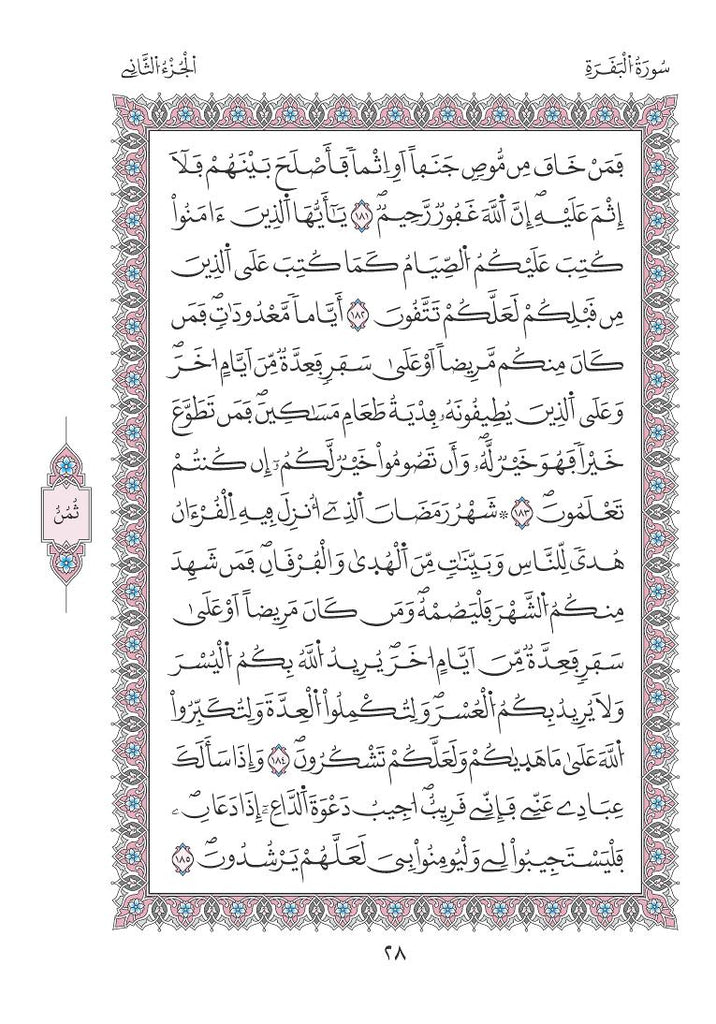 سُورَةُ الْبَقَرَةِ
الْجُزْءُ الثَّانِي
فَمَنْ خَافَ مِن مُّوصٍ جَنَفاً اَوِ اِثْماً فَأَصْلَحَ بَيْنَهُمْ فَلَآ
إِثْمَ عَلَيْهِۖ إِنَّ اَللَّهَ غَفُورٞ رَّحِيمٞۖ ١٨١ يَٰٓأَيُّهَا اَلذِينَ ءَامَنُواْ
كُتِبَ عَلَيْكُمُ اُلصِّيَامُ كَمَا كُتِبَ عَلَى اَلذِينَ
مِن قَبْلِكُمْ لَعَلَّكُمْ تَتَّقُونَ ١٨٢ أَيَّاماً مَّعْدُودَٰتٖۖ فَمَن
كَانَ مِنكُم مَّرِيضاً اَوْ عَلَىٰ سَفَرٖ فَعِدَّةٞ مِّنَ اَيَّامٍ اُخَرَۖ
وَعَلَى اَلذِينَ يُطِيقُونَهُۥ فِدْيَةُ طَعَامِ مَسَٰكِينَۖ فَمَن تَطَوَّعَ
خَيْراٗ فَهُوَ خَيْرٞ لَّهُۥۖ وَأَن تَصُومُواْ خَيْرٞ لَّكُمُۥٓ إِن كُنتُمْ
تَعْلَمُونَۖ ١٨٣ ۞ شَهْرُ رَمَضَانَ اَلذِےٓ أُنزِلَ فِيهِ اِلْقُرْءَانُ
هُدىٗ لِّلنَّاسِ وَبَيِّنَٰتٖ مِّنَ اَلْهُدَىٰ وَالْفُرْقَانِۖ فَمَن شَهِدَ
مِنكُمُ اُلشَّهْرَ فَلْيَصُمْهُۖ وَمَن كَانَ مَرِيضاً اَوْ عَلَىٰ
سَفَرٖ فَعِدَّةٞ مِّنَ اَيَّامٍ اُخَرَۖ يُرِيدُ اُللَّهُ بِكُمُ اُلْيُسْرَ
وَلَا يُرِيدُ بِكُمُ اُلْعُسْرَۖ وَلِتُكْمِلُواْ اُلْعِدَّةَ وَلِتُكَبِّرُواْ
اُللَّهَ عَلَىٰ مَا هَدَيٰكُمْ وَلَعَلَّكُمْ تَشْكُرُونَۖ ١٨٤ وَإِذَا سَأَلَكَ
عِبَادِے عَنِّے فَإِنِّے قَرِيبٌۖ اُجِيبُ دَعْوَةَ اَلدَّاعِۦٓ إِذَا دَعَانِۦۖ
فَلْيَسْتَجِيبُواْ لِے وَلْيُومِنُواْ بِے لَعَلَّهُمْ يَرْشُدُونَۖ ١٨٥
ثُمُنُ
٢٨